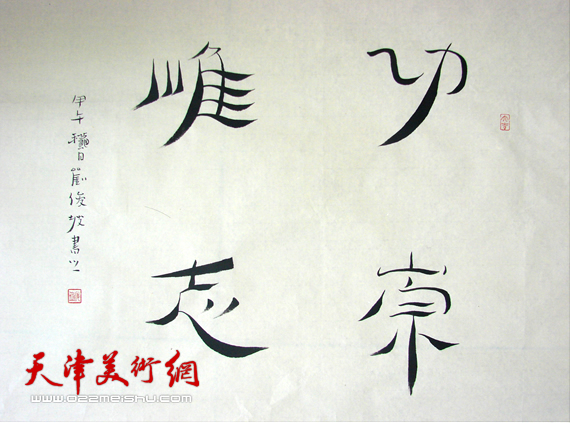 功崇
惟志
甲午穐日劉俊坡書之
天津美術網
www.022meishu.com